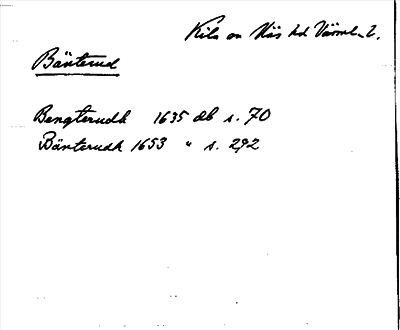 Kila sn Näs hd Värml. l.
Bänterud
Bengterudh 1635 db s. 70
Bänterudh 1653 " s. 292